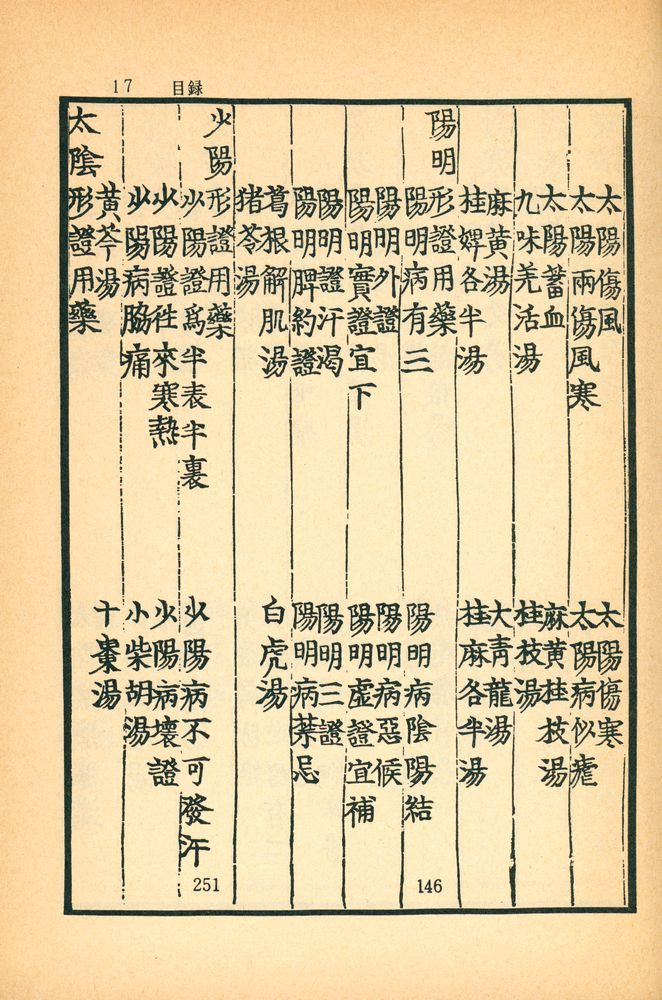 17 目録
太陽傷風 太陽傷寒
太陽兩傷風寒 太陽病似瘧
太陽蓄血 麻黄桂枝湯
九味羌活湯 桂枝湯
麻黄湯 大青龍湯
桂婢各半湯 桂麻各半湯
陽明形證用藥 146
陽明病有三 陽明病陰陽結
陽明外證 陽明病惡候
陽明實證宜下 陽明虚證宜補
陽明證汗渴 陽明三證
陽明脾約證 陽明病禁忌
葛根解肌湯 白虎湯
猪苓湯
少陽形證用藥 251
少陽證爲半表半裏 少陽病不可發汗
少陽證徃來寒熱 少陽病壞證
少陽病脇痛 小柴胡湯
黄芩湯 十棗湯
太陰形證用藥